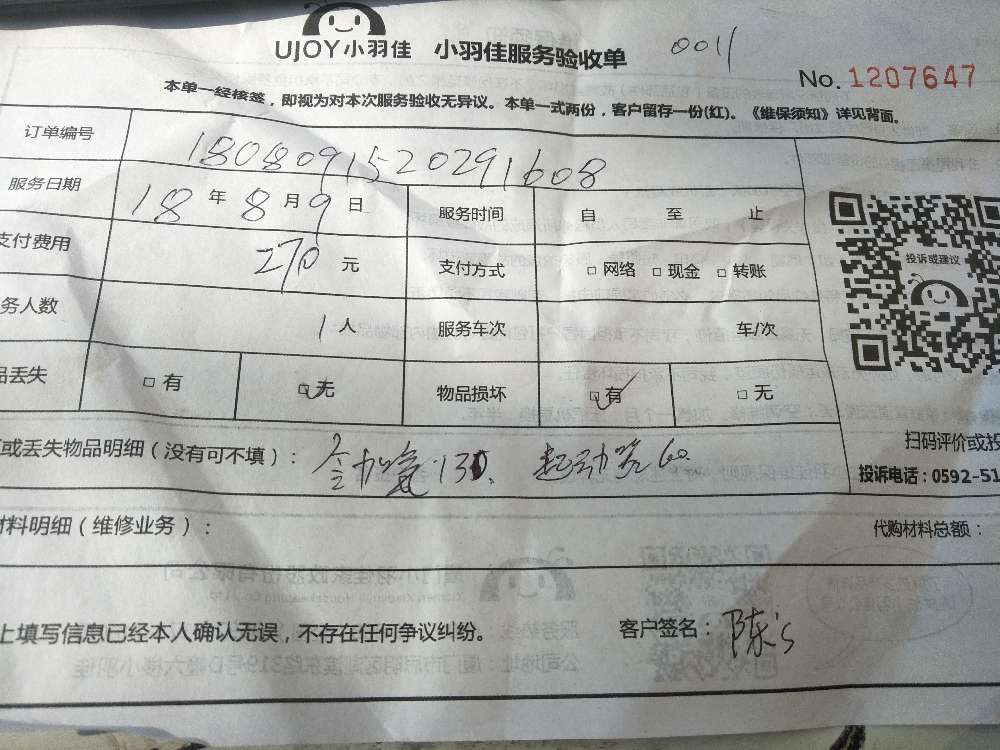 UJOY小羽佳 小羽佳服务验收单 0011
No. 1207647
本单一经核签，即视为对本次服务验收无异议。本单一式两份，客户留存一份(红)。《维保须知》详见背面。
订单编号 1808091520291608
服务日期 18 年 8 月 9 日 服务时间 自 至 止
支付费用 270 元 支付方式 □网络 □现金 □转账
投诉或建议
务人数 1 人 服务车次 车/次
品丢失 □有 □无 物品损坏 □有 □无
扫码评价或投
或丢失物品明细（没有可不填）： 全加氟130、 起动器60
投诉电话：0592-51
材料明细（维修业务）： 代购材料总额：
上填写信息已经本人确认无误，不存在任何争议纠纷。 客户签名：陈's